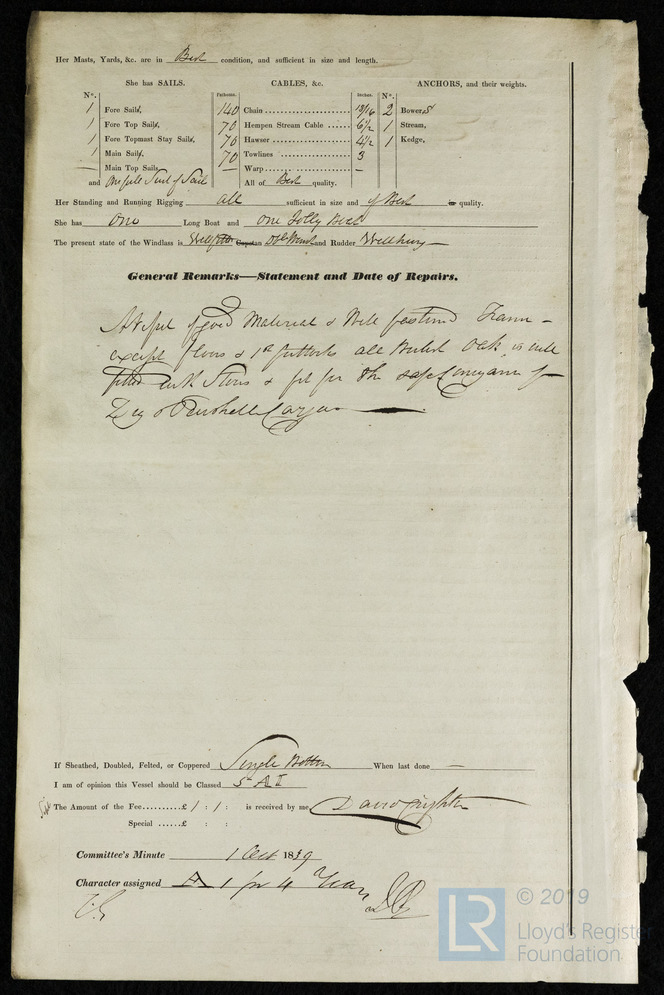 Her Masts, Yards, &c. are in Best condition, and sufficient in size and length.
She has SAILS. CABLES, &c. ANCHORS, and their weights.
N°. Fathoms. Inches. N°.
1 Fore Sails, 140 Chain 13/16 2 Bowers
1 Fore Top Sails, 70 Hempen Stream Cable 6 1/2 1 Stream,
1 Fore Topmast Stay Sails, 70 Hawser 4 1/2 1 Kedge,
1 Main Sails, 70 Towlines 3
— Main Top Sails — Warp —
and One full Suit of Sail All of Best quality.
Her Standing and Running Rigging all sufficient in size and of Best in quality.
She has One Long Boat and One Jolly Boat
The present state of the Windlass is Capstan and Rudder
General Remarks—Statement and Date of Repairs.
of good Material & Well fastened
except floors & 1st futtocks all Oak is well
fitted with & fit for the safe Conveyance of
Dry & Perishable Cargoes
If Sheathed, Doubled, Felted, or Coppered Single Bottom When last done —
I am of opinion this Vessel should be Classed
The Amount of the Fee..........£ 1 : 1 : is received by me,
Special ......£ : :
Committee's Minute 1 Oct 1839
Character assigned A 1 for 4 Years
© 2019
LR
Lloyd's Register
Foundation